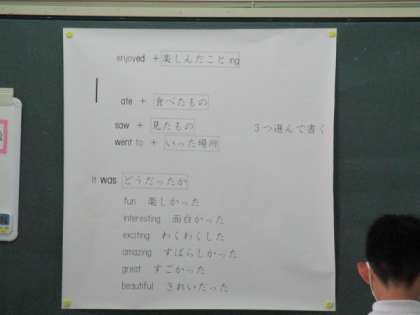 enjoyed + 楽しんだこと ing
I
ate + 食べたもの
saw + 見たもの
went to + いった場所
3つ選んで書く
It was どうだったか
fun 楽しかった
interesting 面白かった
exciting わくわくした
amazing すばらしかった
great すごかった
beautiful きれいだった